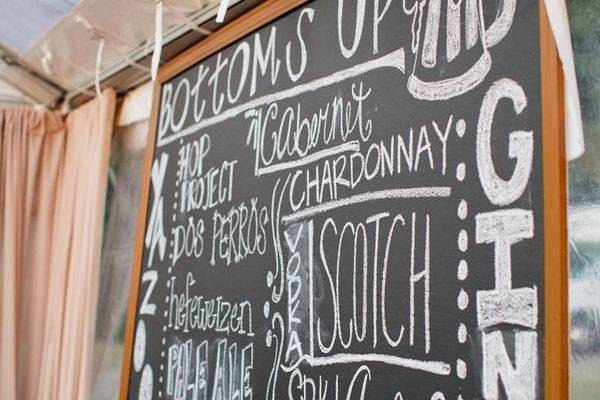 BOTTOMS UP
HOP
PROJECT
DOS PERROS
hefeweizen
PALE ALE
Cabernet
CHARDONNAY
VODKA
SCOTCH
GIN